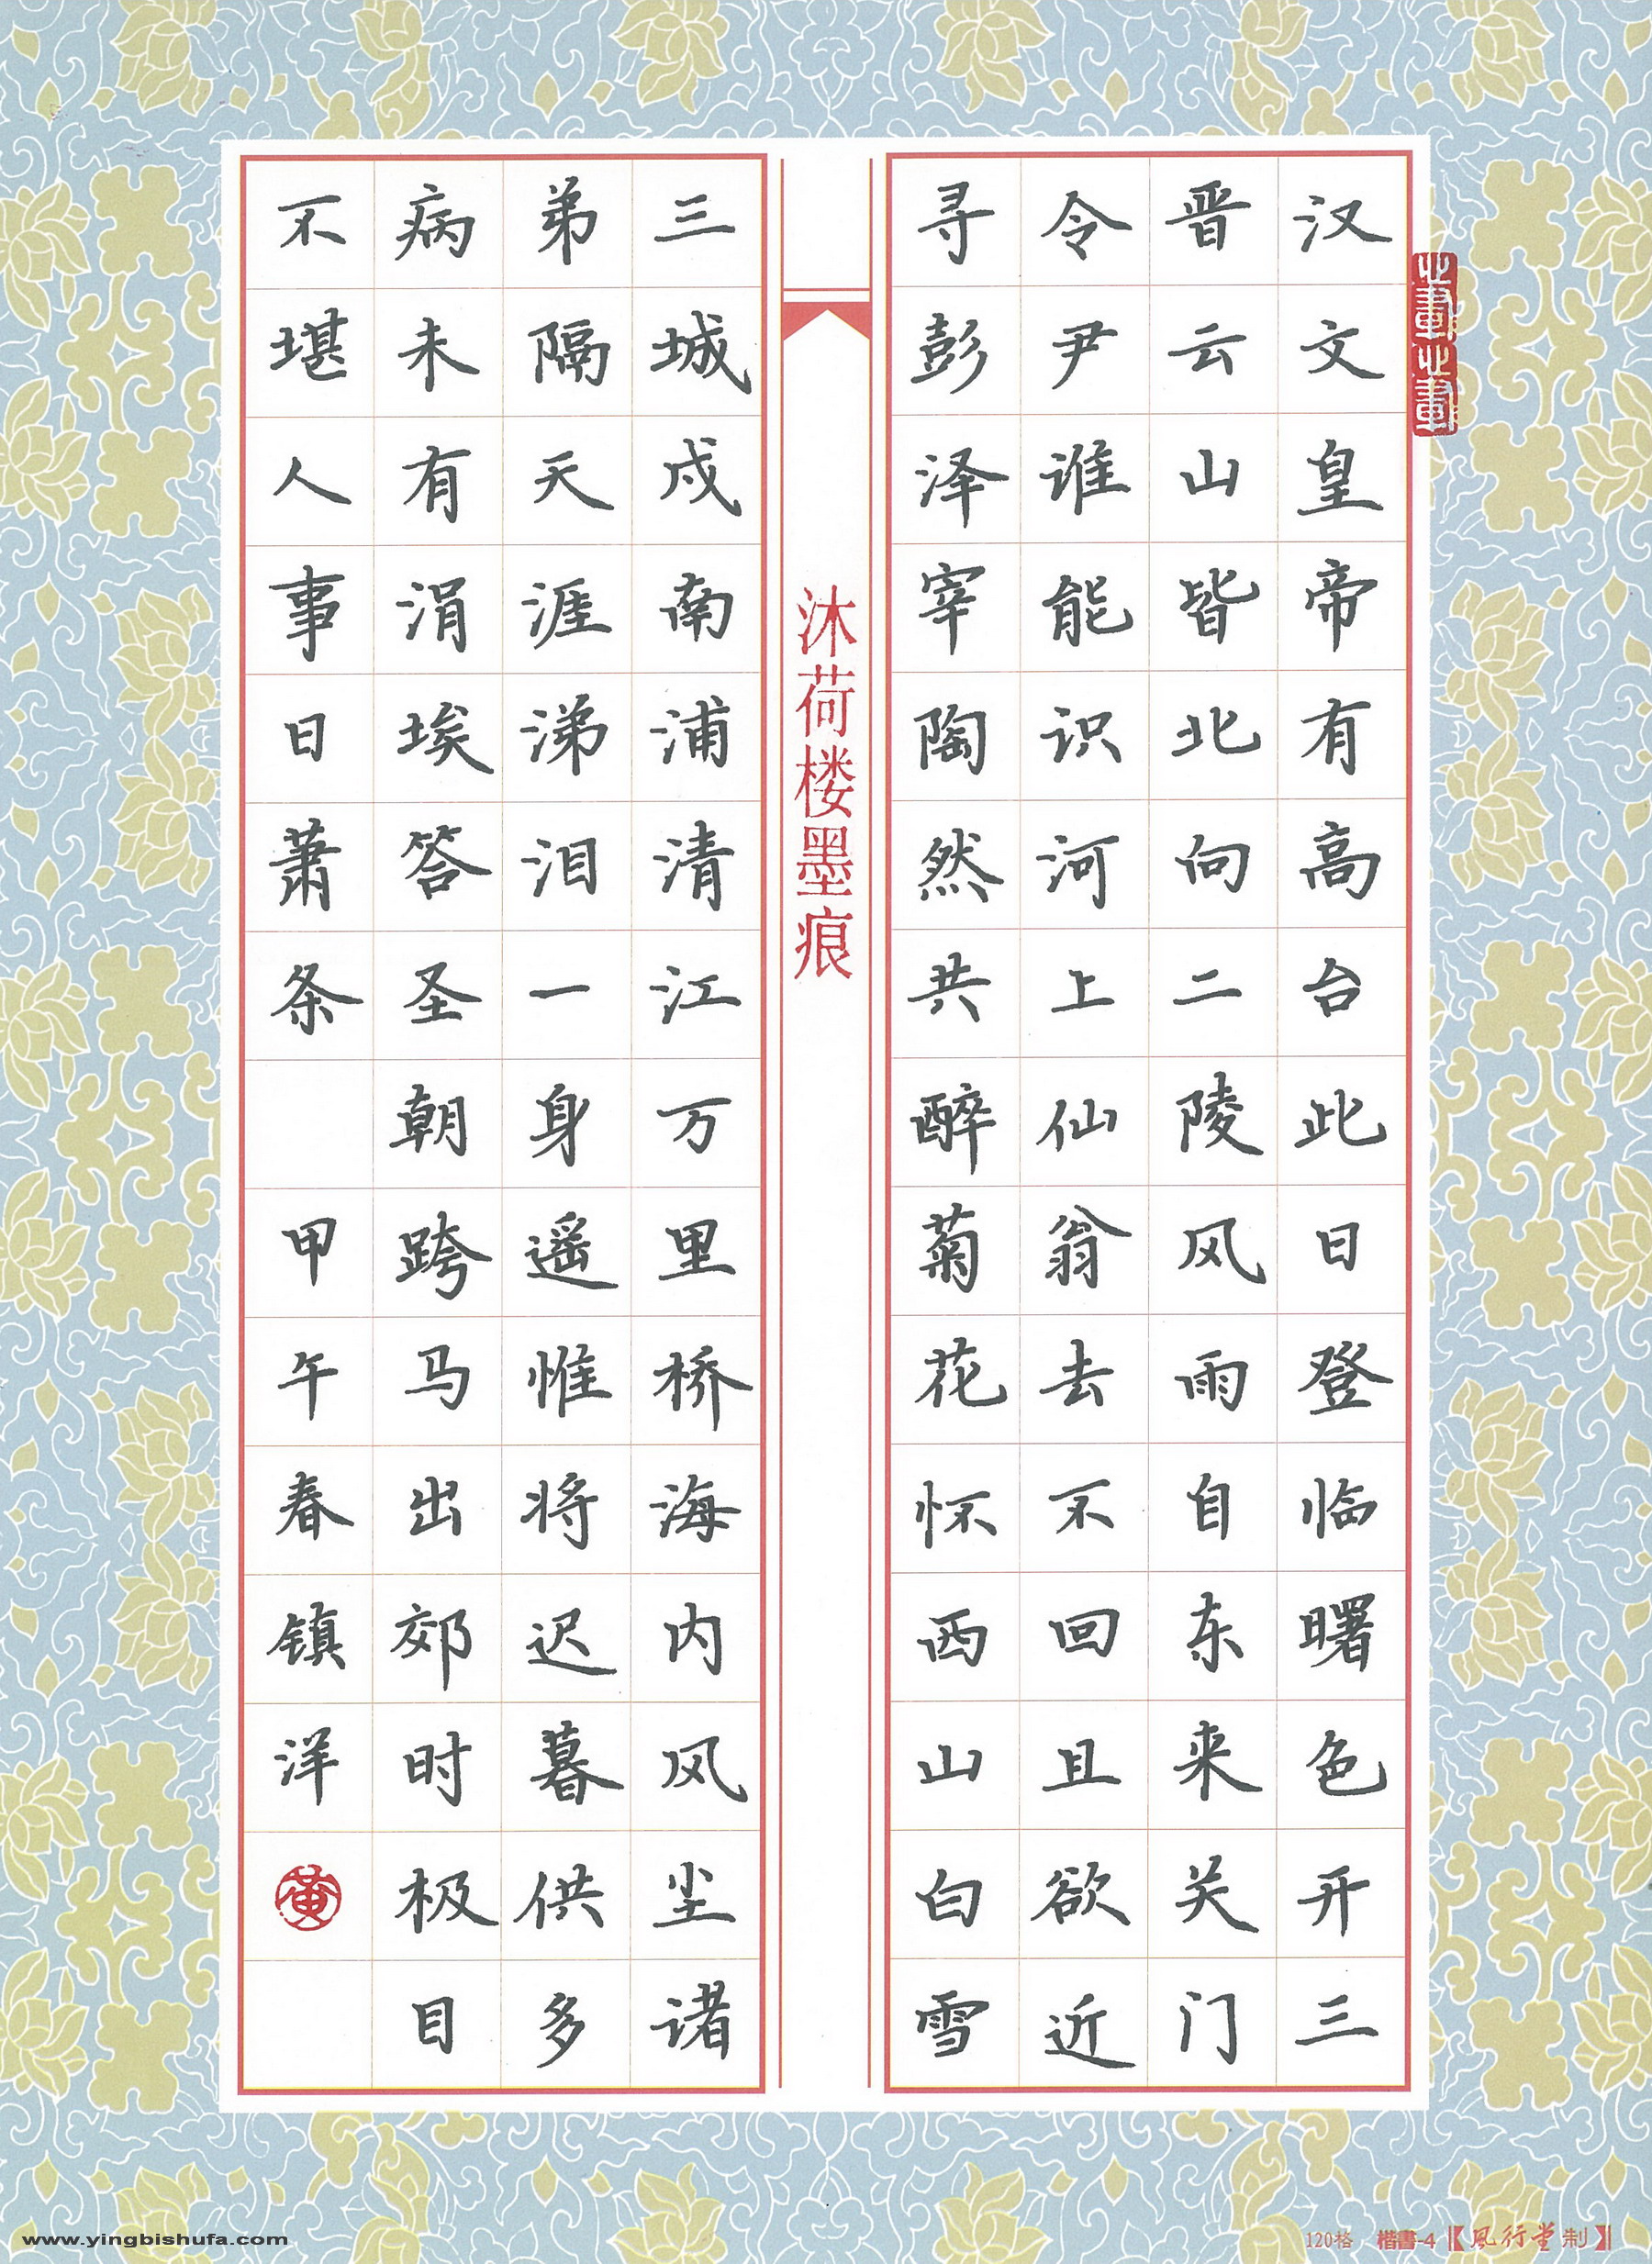 汉文皇帝有高台此日登临曙色开三
晋云山皆北向二陵风雨自东来关门
令尹谁能识河上仙翁去不回且欲近
寻彭泽宰陶然共醉菊花怀西山白雪
沐荷楼墨痕
三城戍南浦清江万里桥海内风尘诸
弟隔天涯涕泪一身遥惟将迟暮供多
病未有涓埃答圣朝跨马出郊时极目
不堪人事日萧条 甲午春镇洋
黄
120格 楷書-4【風行堂制】
www.yingbishufa.com